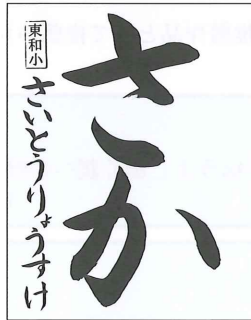 さか
東和小
さいとうりょうすけ